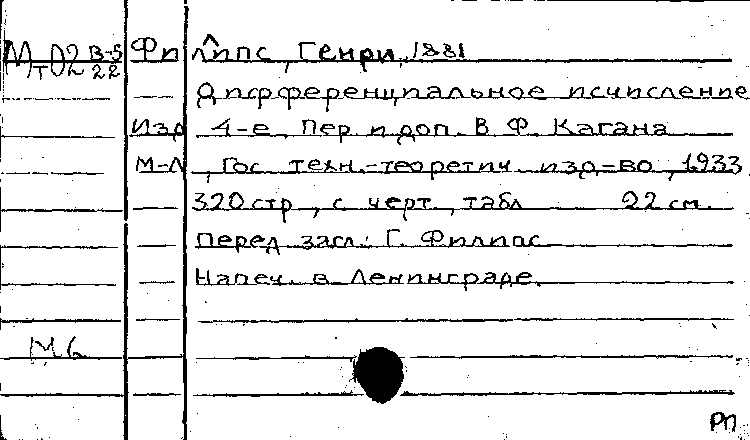 МтО2 В-5 22 Филипс, Генри, 1881
Дифференциальное исчисление
Изд 4-е, Пер и доп. В. Ф. Кагана
М-Л, Гос. техн.-теоретич. изд-во, 1933
320 стр, с черт, табл 22 см.
Перед загл.: Г. Филипс
Напеч. в Ленинграде.
М6
РП